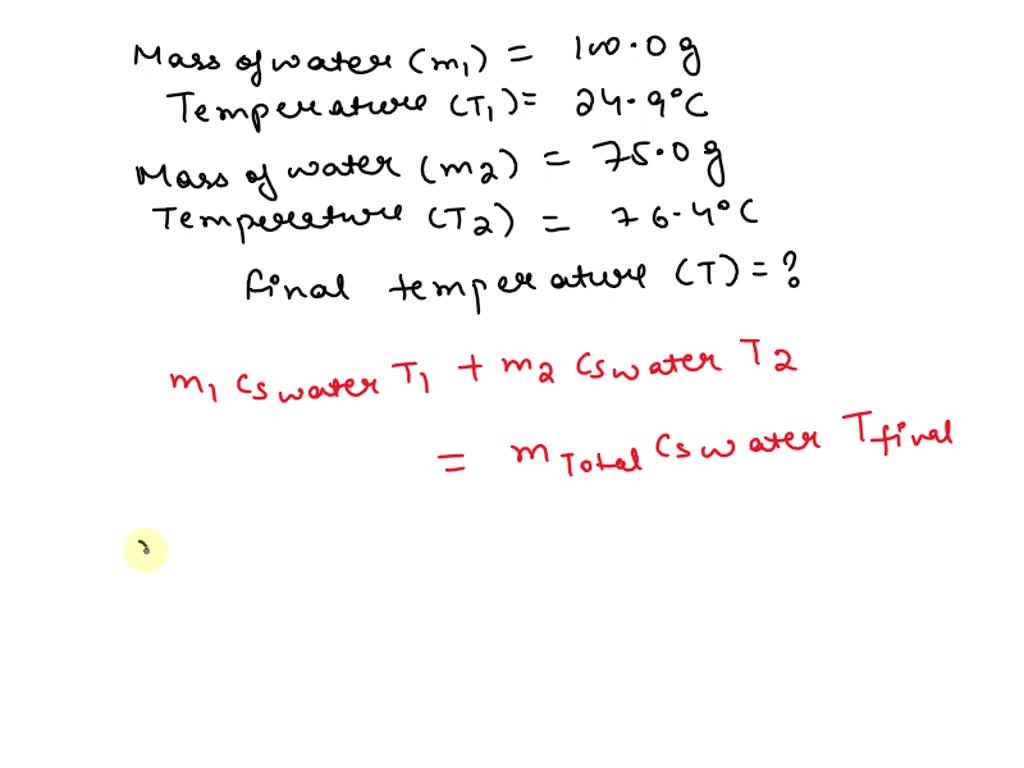 Mass of water (m1) = 100.0 g
Temperature (T1) = 24.9°C
Mass of water (m2) = 75.0 g
Temperature (T2) = 76.4°C
final temperature (T) = ?
m1 Cs water T1 + m2 Cs water T2
= m Total Cs water T final